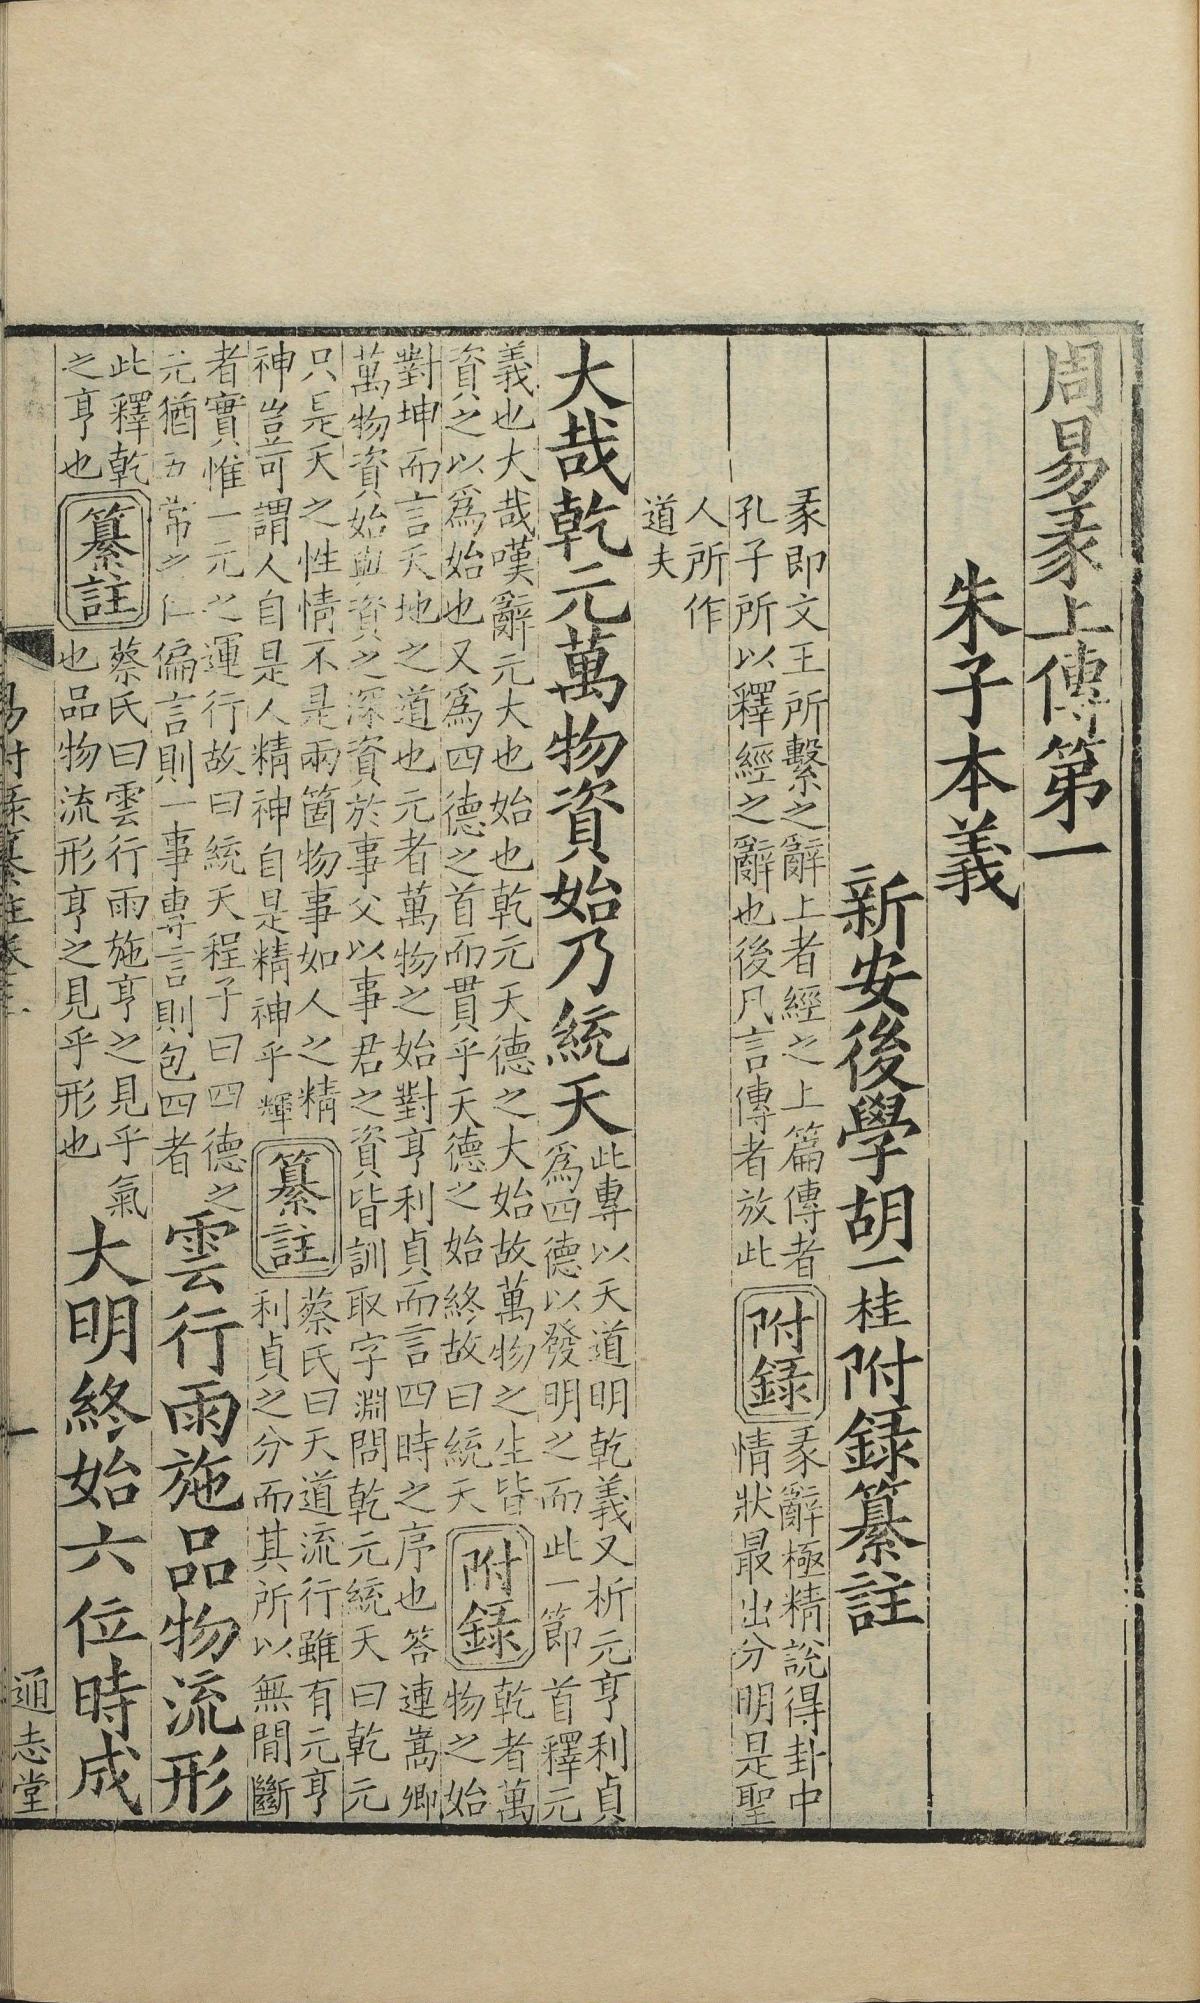 周易彖上傳第一
朱子本義
新安後學胡一桂附錄纂註
彖即文王所繫之辭上者經之上篇傳者
孔子所以釋經之辭也後凡言傳者放此
附錄
彖辭極精說得卦中
情狀最出分明是聖
人所作
道夫
大哉乾元萬物資始乃統天
此專以天道明乾義又析元亨利貞
爲四德以發明之而此一節首釋元
義也大哉嘆辭元大也始也乾元天德之大始故萬物之生皆
資之以爲始也又爲四德之首而貫乎天德之始終故曰統天
附錄
乾者萬
物之始
對坤而言天地之道也元者萬物之始對亨利貞而言四時之序也答連嵩卿
萬物資始血資之深資於事父以事君之資皆訓取字淵問乾元統天曰乾元
只是天之性情不是兩箇物事如人之精
神豈可謂人自是人精神自是精神乎輝
纂註
蔡氏曰天道流行雖有元亨
利貞之分而其所以無間斷
者實惟一元之運行故曰統天程子曰四德之
元猶五常之仁偏言則一事專言則包四者
雲行雨施品物流形
此釋乾
之亨也
纂註
蔡氏曰雲行雨施亨之見乎氣
也品物流形亨之見乎形也
大明終始六位時成
易附錄纂註卷三
一
通志堂